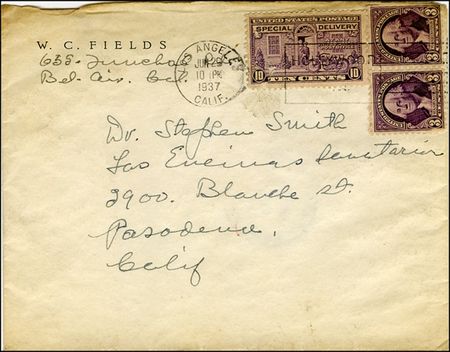 W. C. FIELDS
655- Funchal
Bel Air. Cal.
LOS ANGELES
JUN 29
10 PM
1937
CALIF.
UNITED STATES POSTAGE
SPECIAL DELIVERY
10 10
TEN CENTS
3 3
3 3
Dr. Stephen Smith
Las Encinas Sanitarium
2900. Blanche St.
Pasadena,
Calif